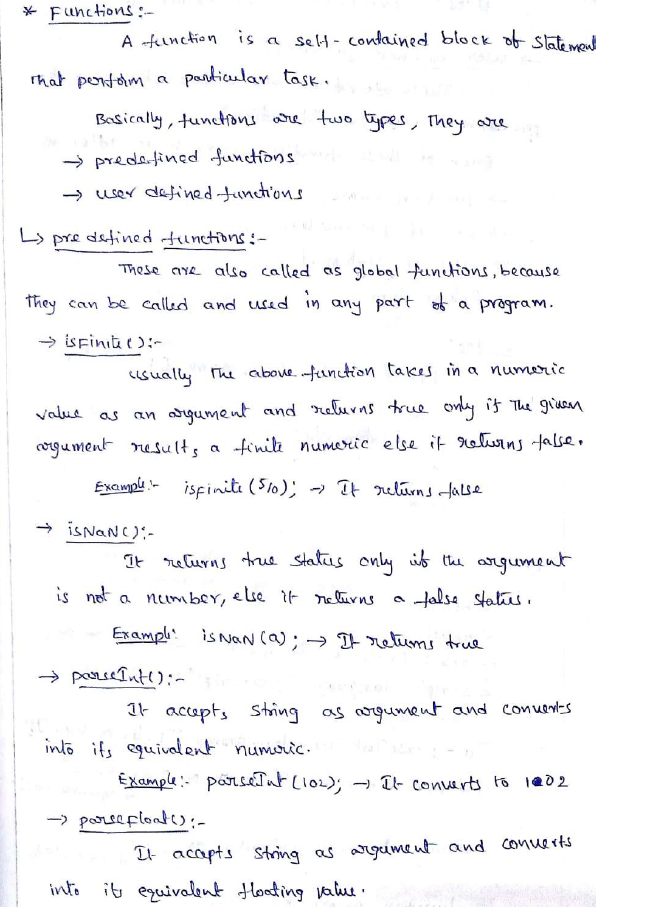 * Functions :-
A function is a self-contained block of statement
that perform a particular task.
Basically, functions are two types, They are
→ predefined functions
→ user defined functions
↳ pre defined functions :-
These are also called as global functions, because
they can be called and used in any part of a program.
→ isFinite():-
usually the above function takes in a numeric
value as an argument and returns true only if The given
argument results a finite numeric else it returns false.
Example:- isFinite (5/0); → It returns false
→ isNaN():-
It returns true status only if the argument
is not a number, else it returns a false status.
Example: isNaN (a); → It returns true
→ parseInt():-
It accepts string as argument and converts
into its equivalent numeric.
Example:- parseInt (102); → It converts to 102
→ parseFloat():-
It accepts string as argument and converts
into its equivalent floating value.